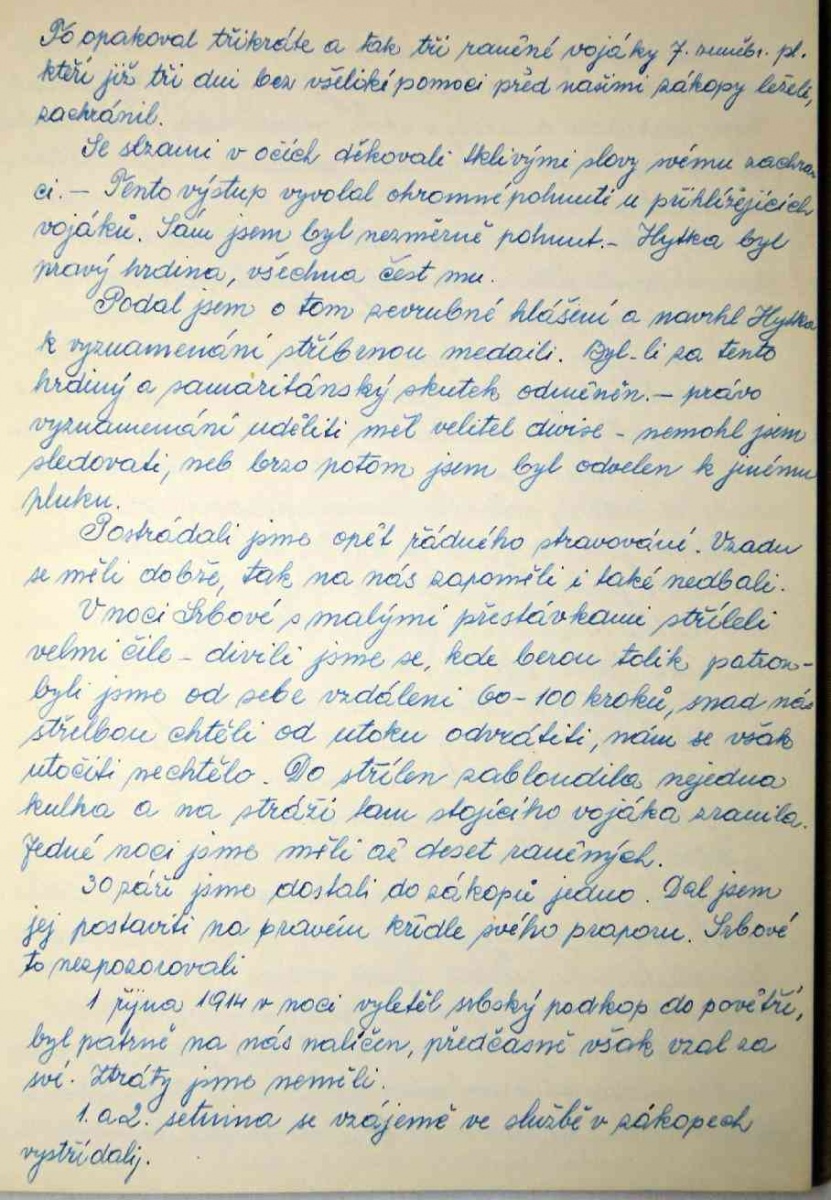 To opakoval třikráte a tak tři raněné vojáky 7. zeměbr. pl.
kteří již tři dni bez všeliké pomoci před našimi zákopy leželi,
zachránil.
Se slzami v očích děkovali tklivými slovy svému zachrán-
ci. – Tento výstup vyvolal ohromné pohnutí u přihlížejících
vojáků. Sám jsem byl nezměrně pohnut. – Hytka byl
pravý hrdina, všechna čest mu.
Podal jsem o tom zevrubné hlášení a navrhl Hytka
k vyznamenání stříbrnou medaili. Byl-li za tento
hrdiný a samaritánský skutek odměněn. – právo
vyznamenání uděliti měl velitel divise – nemohl jsem
sledovati, neb brzo potom jsem byl odvelen k jinému
pluku.
Postrádali jsme opět řádného stravování. Vzadu
se měli dobře, tak na nás zapoměli i také nedbali.
V noci Srbové s malými přestávkami stříleli
velmi čile – divili jsme se, kde berou tolik patron –
byli jsme od sebe vzdáleni 60–100 kroků, snad nás
střelbou chtěli od utoku odvrátiti, nám se však
utočiti nechtělo. Do střílen zabloudila nejedna
kulka a na stráži tam stojícího vojáka zranila.
Jedné noci jsme měli až deset raněných.
30 září jsme dostali do zákopů jedno . Dal jsem
jej postaviti na pravém křídle svého praporu. Srbové
to nezpozorovali
1 října 1914 v noci vyletěl srbský podkop do povětří,
byl patrně na nás nalíčen, předčasně však vzal za
své. Ztráty jsme neměli.
1. a 2. setnina se vzájemě ve službě v zákopech
vystřídalij.